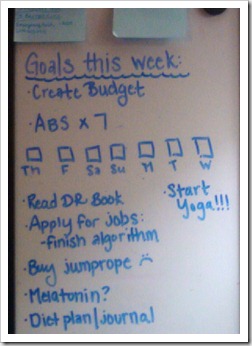 Goals this week:
· Create Budget
· ABS x 7
Th F Sa Su M T W
· Read DR Book
· Apply for jobs:
- finish algorithm
· Buy jumprope ☹
· Melatonin?
· Diet plan/journal
· Start
Yoga!!!